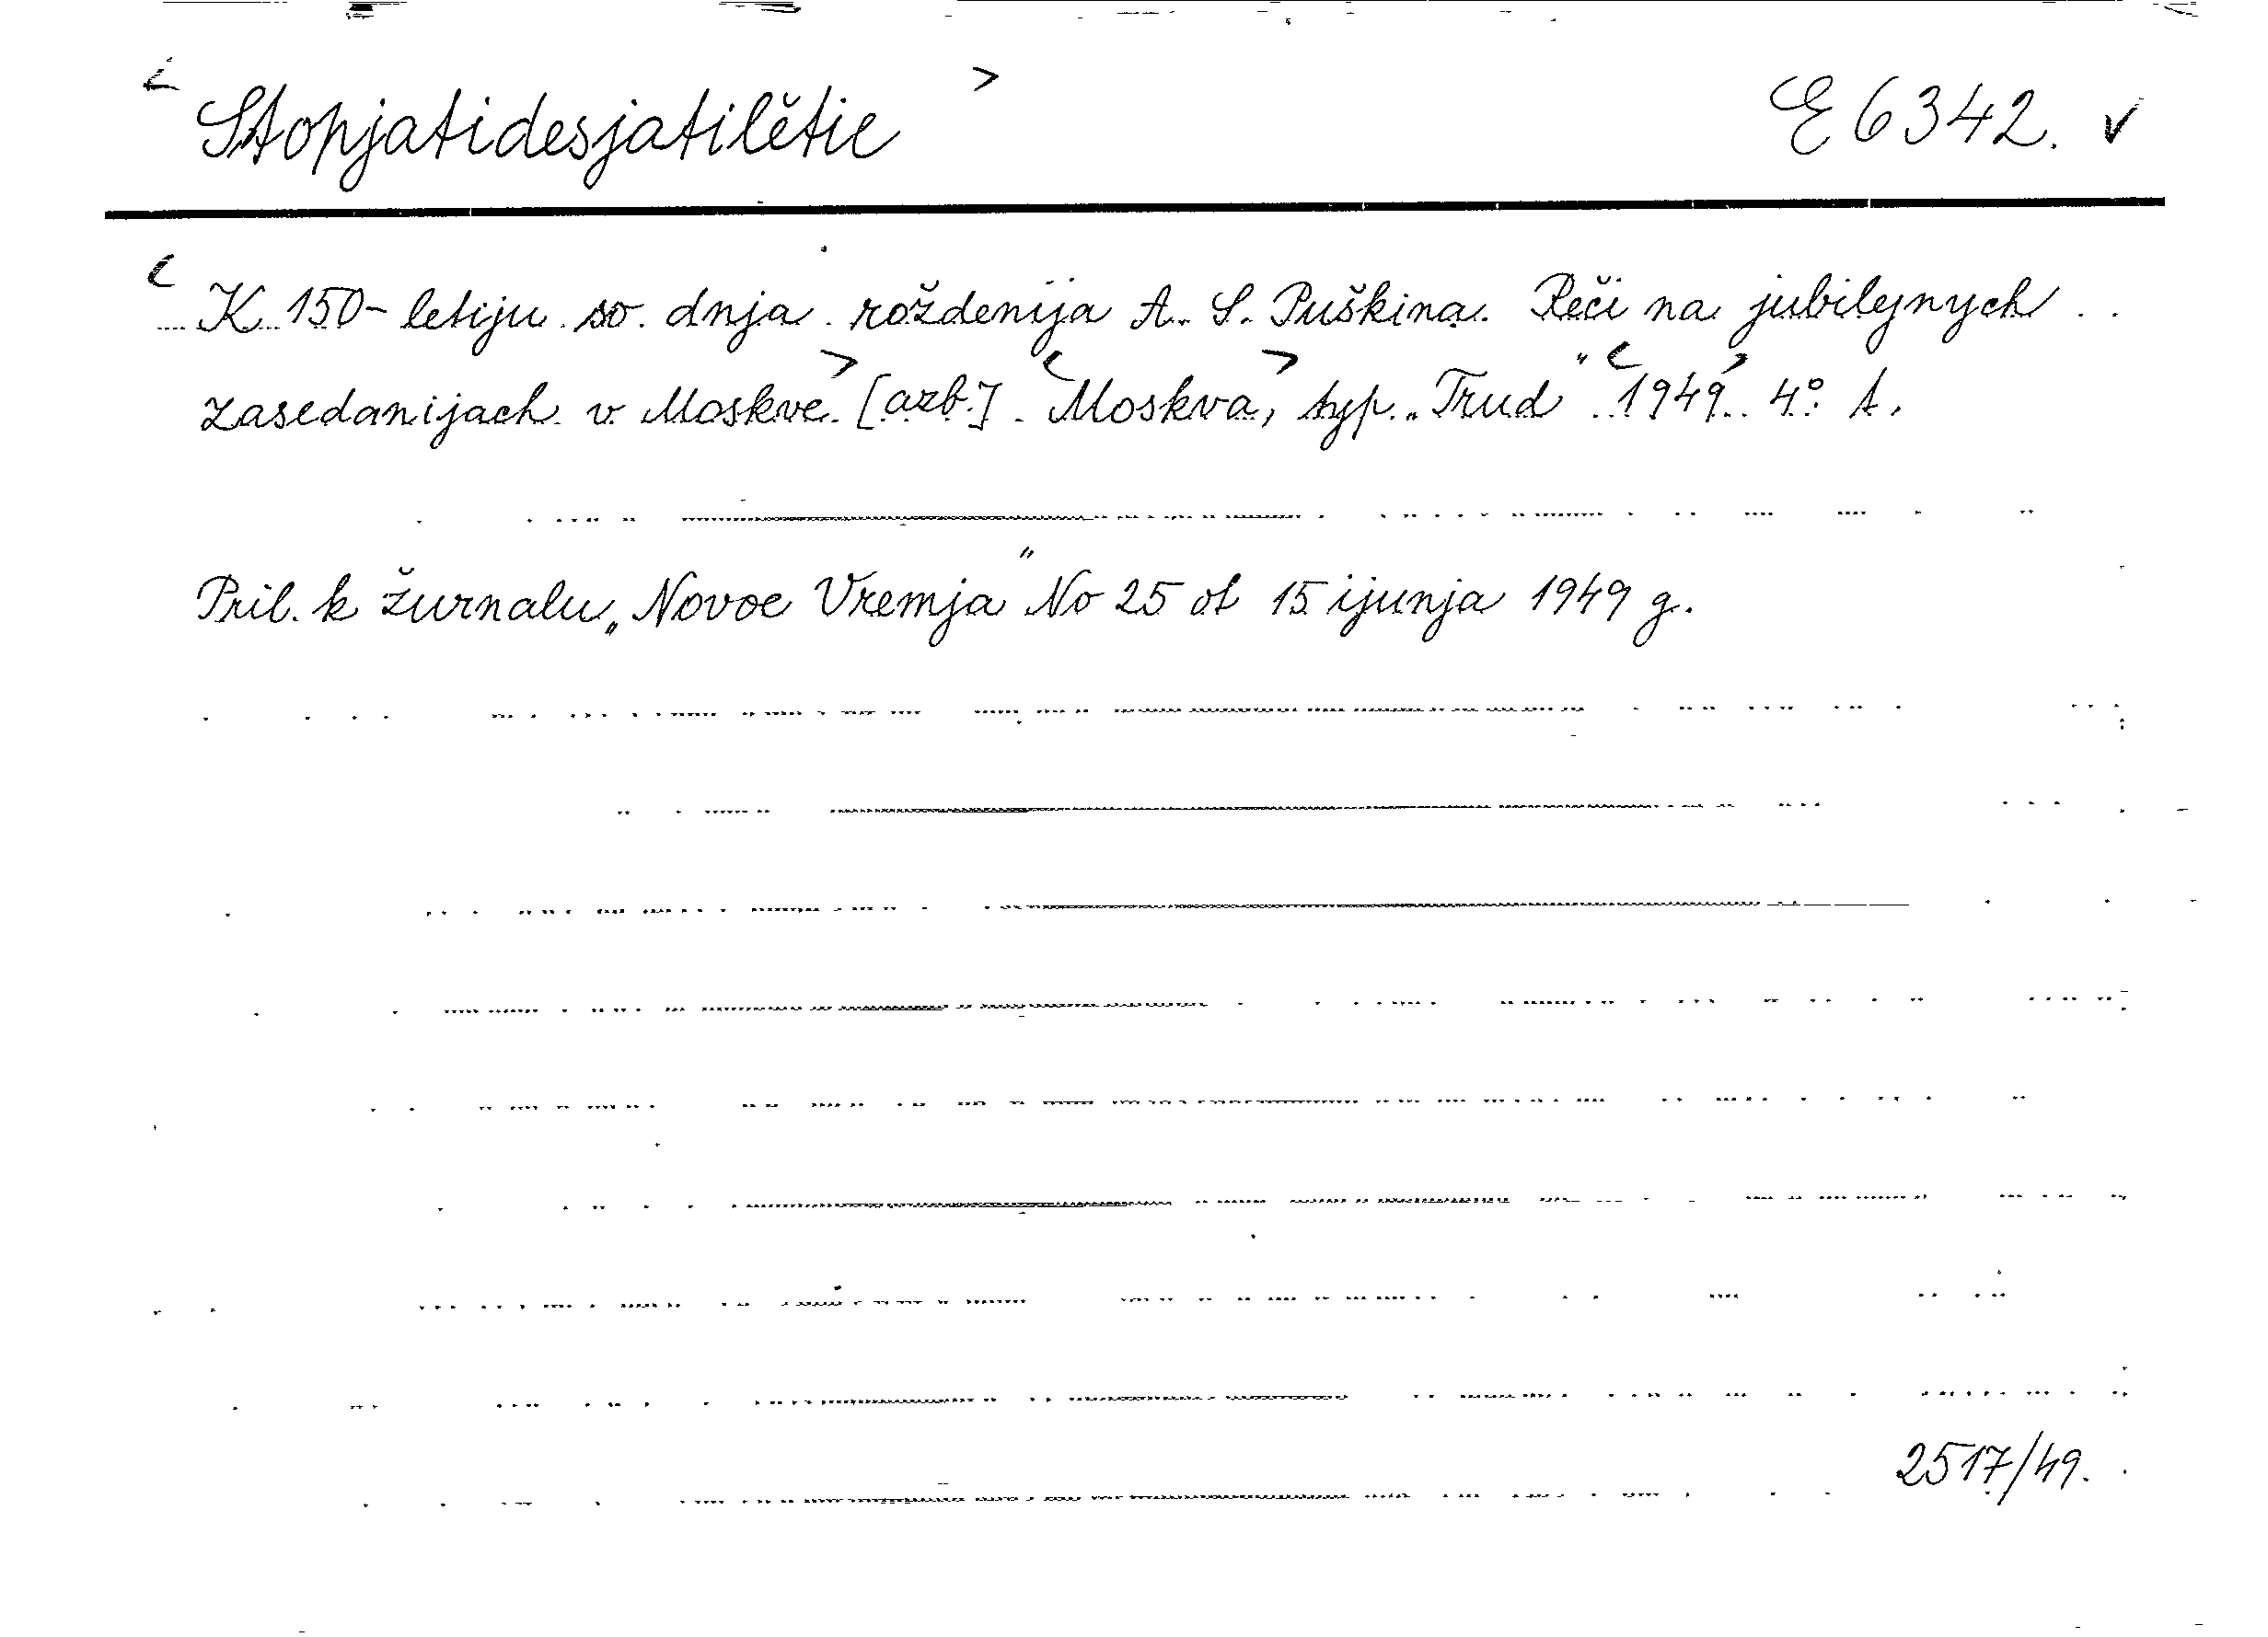 < Stopjatidesjatilětie > E 6342. v
< K 150-letiju so dnja roždenija A. S. Puškina. Reči na jubilejnych
zasedanijach v Moskve > [azb.]. < Moskva, > typ. „Trud" < 1949 > 4° A.
Pril. k žurnalu „Novoe Vremja" No 25 ot 15 ijunja 1949 g.
2517/49.